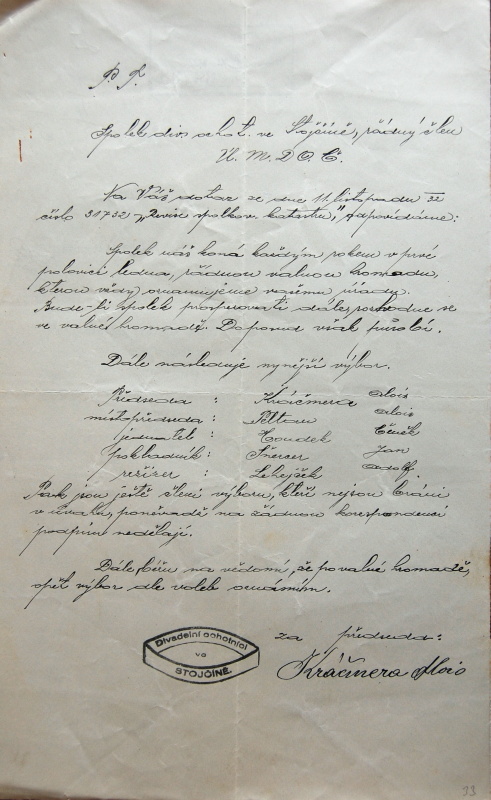 P. T.
Spolek div. ochot. ve Stojčíně, řádný člen
Ú. M. D. O. Č.
Na Váš dotaz ze dne 11. listopadu 32
číslo 30732 „Revise spolkov. katastru", odpovídáme:
Spolek náš koná každým rokem v prvé
polovici ledna, řádnou valnou hromadu,
kterou vždy oznamujeme vašemu úřadu.
Bude-li spolek prosperovati dále, rozhodne se
ve valné hromadě. Doposud však působí.
Dále následuje nynější výbor.
Předseda : Kráčmera Alois
místopředseda : Peltan Alois
jednatel : Houdek Čeněk
pokladník : Šnercer Jan
režizer : Lehejček Adolf.
Pak jsou ještě členi výboru, kteří nejsou bráni
v úvahu, poněvadž na žádnou korespondenci
podpisu nedělají.
Dále béřu na vědomí, že po valné hromadě,
opět výbor dle voleb oznámím.
za předseda:
Kráčmera Alois
Divadelní ochotníci
ve
STOJČÍNĚ.
93